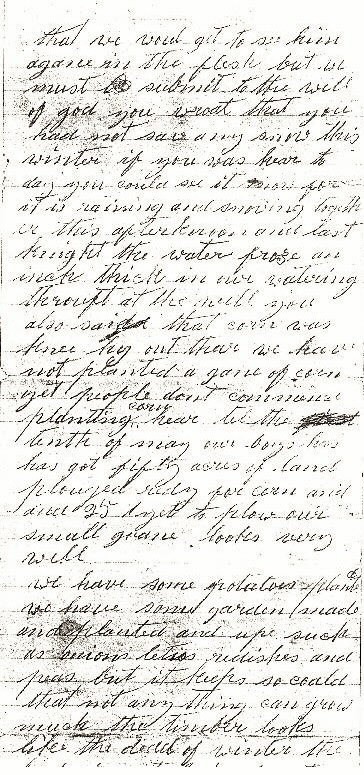 that we woud get to see him
agane in the flesh but we
must submit to the will
of god you wroat that you
had not saw any snow this
winter if you was hear to
day you could see it snow for
it is raining and snowing togeth
er this afterknoon and last
knight the water froze an
inck thick in our watering
throught at the well you
also said that corn was
knee hy out thear we have
not planted a gane of corn
yet people dont commence
planting corn hear til the
tenth of may our boys has
has got fifty acres of land
plouged redy for corn and
and 25 yet to plow our
small grane looks very
well
we have some potatoes plante
we have some garden made
and planted and upe such
as onions letus redishes and
peas but it keeps so coald
that not any thing can grow
much the timber looks
like the dedd of winter the